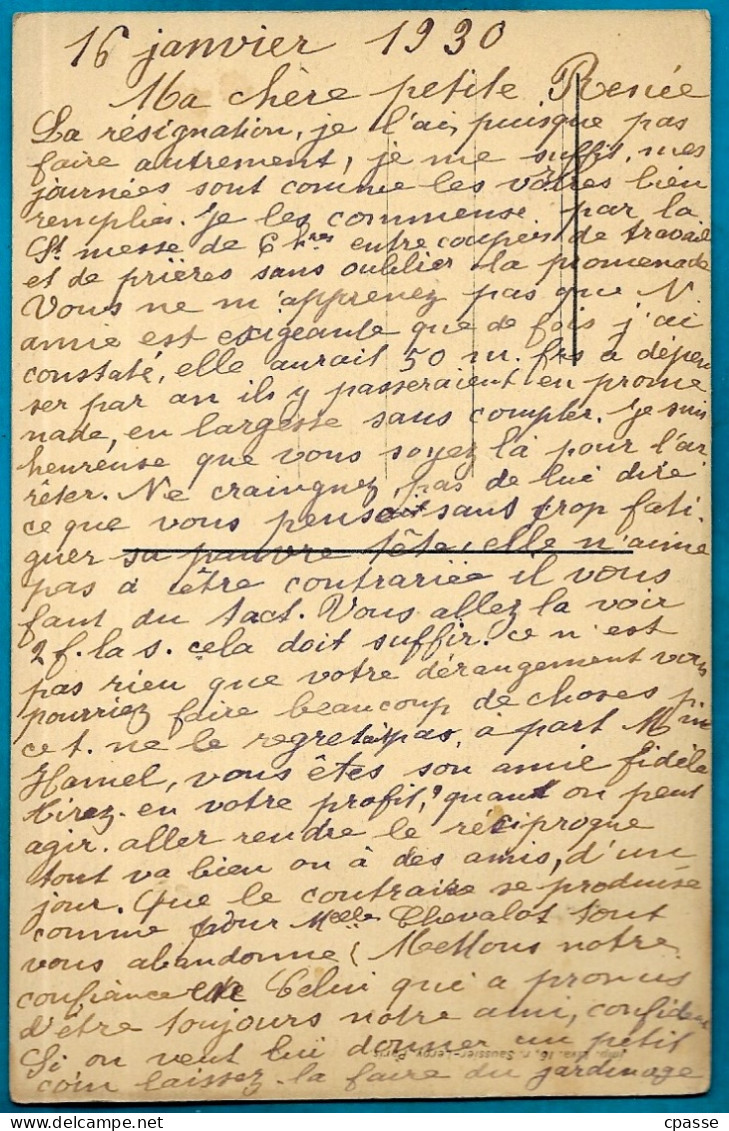 16 janvier 1930
Ma chère petite Renée
La résignation, je l'ai, puisque pas
faire autrement, je me suffit, mes
journées sont comme les vôtres bien
remplies. Je les commense par la
St messe de 6 hres entrecoupées de travail
et de prières sans oublier la promenade
Vous ne m'apprenez pas que N.
amie est exigeante que de fois j'ai
constaté, elle aurait 50 m. frs à dépen
ser par an ils y passeraient en prome
nade, en largesse sans compter. Je suis
heureuse que vous soyez là pour l'ar
rêter. Ne craingnez pas de lui dire
ce que vous pensait sans trop fati-
guer sa pauvre tête, elle n'aime
pas à être contrariée il vous
faut du tact. Vous allez la voir
2 f. la s. cela doit suffir. ce n'est
pas rien que votre dérangement vous
pourriez faire beaucoup de choses p.
ce t. ne le regrettait pas, à part Mme
Hamel, vous êtes son amie fidèle
tirez-en votre profit, quand on peut
agir. aller rendre le réciproque
tout va bien on a des amis, d'un
jour. Que le contraire se produise
comme pour Melle Chevalot tout
vous abandonne ! Mettons notre
confiance en Celui qui a promis
d'être toujours notre ami, confident
Si on veut lui donner un petit
coin laissez-la faire du jardinage
Imp. 16, r. Saussier-Leroy Paris
cpasse